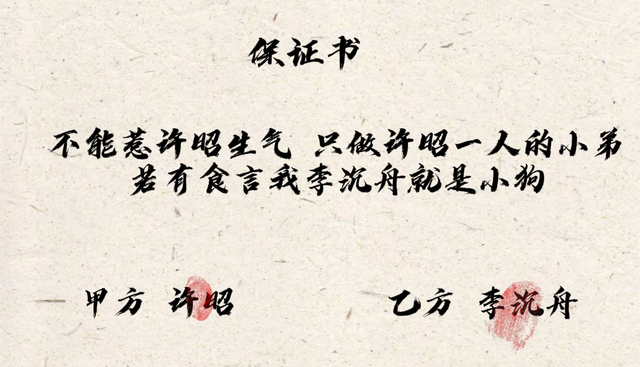 保证书
不能惹许昭生气 只做许昭一人的小弟
若有食言我李沉舟就是小狗
甲方 许昭 乙方 李沉舟